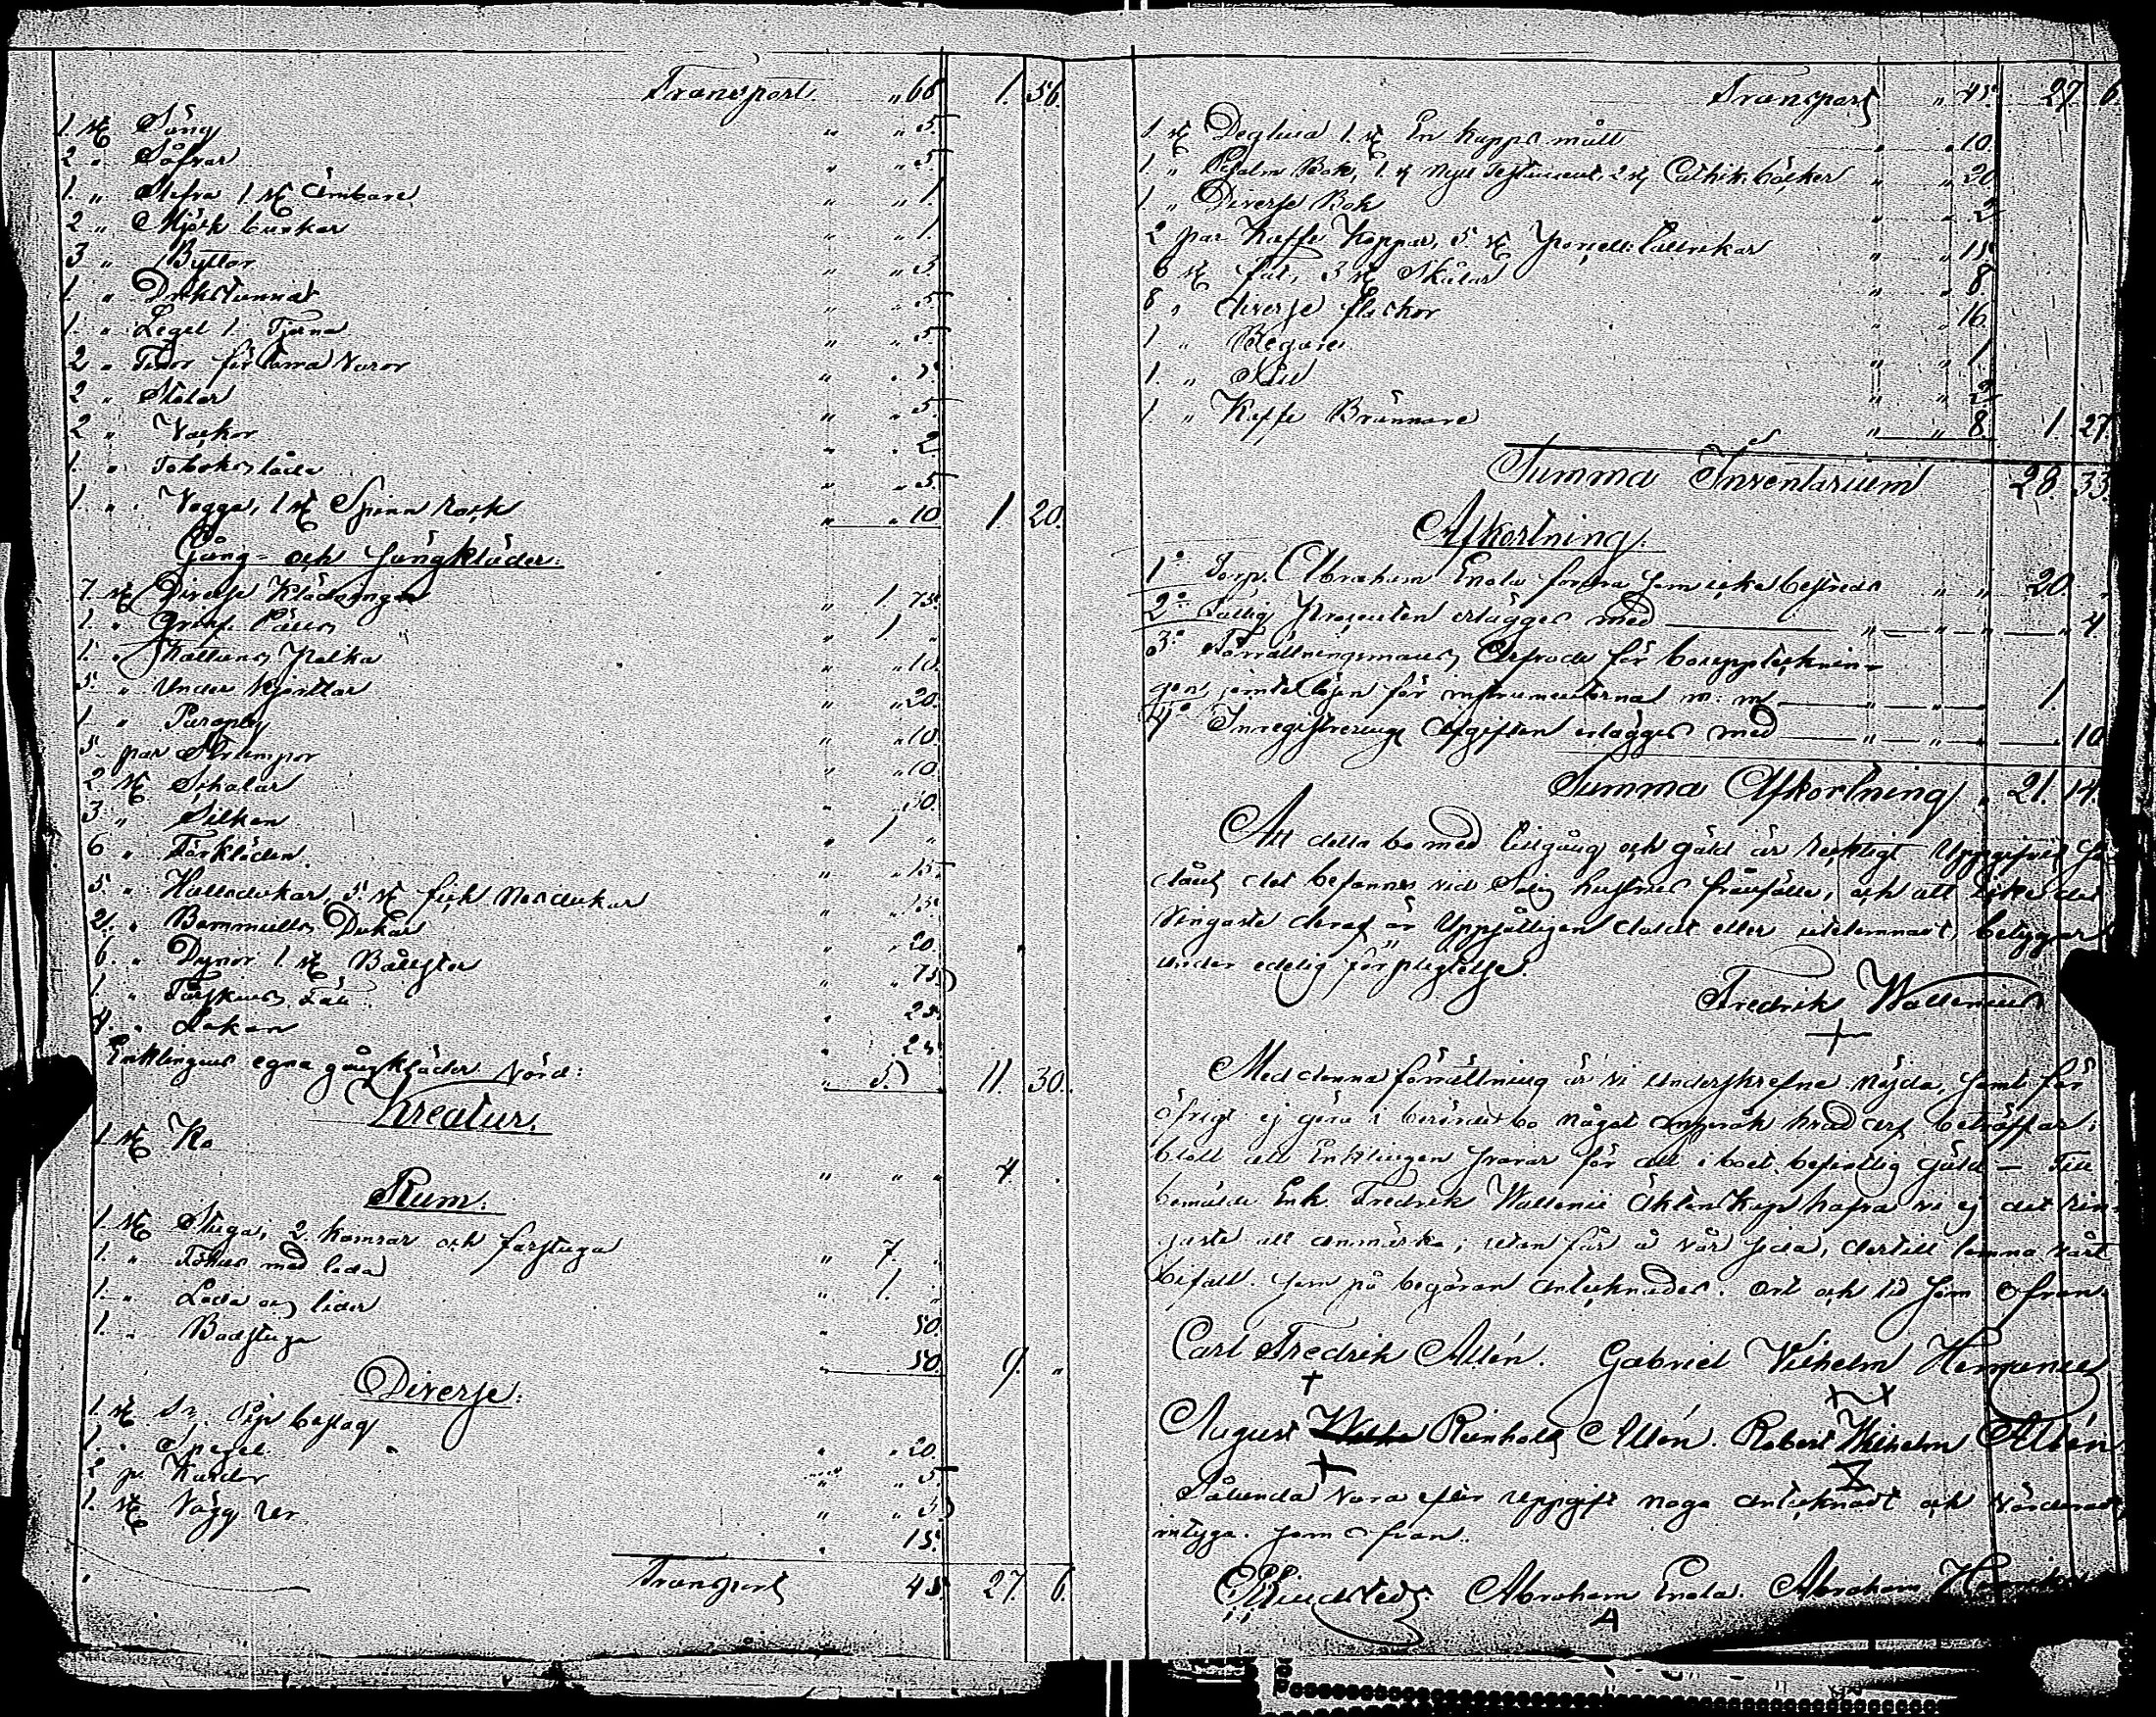 Transport " 68 1. 56.
1 st Säng " " 5
2 " Såfvar " " 5
1. " Stefva 1 st Ämbare " " 1.
2 " Mjölk bunkar " " 1
3 " Byttor " " 3
1. " Drickstunna " " 5
1. " Legel 1. Tjerna " " 5
2 " Tinor för torra varor
2 " Stolar " " 5
2 " Vackor " " 2
1. " Tobakslåda " " 5
1 " Vagga, 1 st Spinn rock " " 10 1. 20.
Gång- och Sängkläder:
7 st Diverse Klädningar " 1. 75.
1. " 1 "
1. " Kattuns Polka " " 10.
5. " Under Kjortlar " " 20.
1 " Paraply " " 10.
5 par Strumpor " " 10
2 st Schalar " 50.
3 " Silken " 1 "
6 " Förkläden " " 15.
5 " Halsdukar, 5 st fick näsdukar " " 15.
2 " Bommulls Dukar " " 20.
6. " Dynor 1 st Bålster " " 75
1. " Fårskins Fäll " 25
4. " Lakan " 25.
Enklingens egna gångkläder värd: " 5. 11. 30.
Kreatur.
1 st Ko " " " 4. "
Rum.
1. st Stuga, 2 kamrar och farstuga " 7. "
1. " Fähus med lada " 1. "
1. " Lada och lider " 50.
1. " Badstuga " 50. 9. "
Diverse:
1. st beslag " " 20.
1. " Spegel " " 5
2 pr Kardor " " 5
1. st Vägg ur " 15.
Transport 45. 27. 6.
Transport " 45. 27. 6.
1 st Deglum 1 st En kapps mått " " 10.
1 " Psalm Bok, 1 st Nya Testament, 2 st Cathik. böcker " " 20
1. " Diverse Bok " " 2
2 par Kaffe Koppar, 5 st Porcell: Tallrikar " " 15.
6 st fat, 3 st Skålar " " 8
8 " diverse flaskor " " 16.
1 " Bägare " " 1.
1. " Såll " " 2
1. " Kaffe Brännare " " 8. 1. 27
Summa Inventarium 28. 33.
Afkortning.
1° Torp. Abraham Enola fordra som icke bestrides " " 20. "
2° Fattig Procenten erlägges med " " " 4
3° Förrättningsmans Arfvode för bouppteckning-
gen, jemte lösen för instrumenterna m. m. " " 1
4° Inregistrerings Afgiften erlägges med " " " 10
Summa Afkortning " 21. 14.
Att detta bo med tillgång och gäld är redligt Uppgifvet så-
dant det befanns vid Salig hustrus frånfälle, och att icke det
ringaste deraf är Uppsåtligen doldt eller utelemnadt, betygar
under edelig förpligtelse.
Fredrik Wallenius
Med denna förrättning är vi Underskrefne nöjda, samt för
öfrigt ej göra i berörde bo något anspråk hvad arf beträffar;
blott att Enklingen svarar för all i boet befintlig gäld — Till
bemälde Enk. Fredrik Wallenii Äktenskap hafva vi ej det rin-
gaste att anmärka; utan för å vår sida, dertill lemna vårt
bifall. som på begäran antecknades. Ort och tid som ofvan.
Carl Fredrik Allén. Gabriel Vilhelm Hermanus
August Reinhold Allén. Robert Wilhelm Allén
Sålunda vara efter Uppgift noga antecknadt och värderadt
intyga. som ofvan.
Lindstedt. Abraham Enola. Abraham